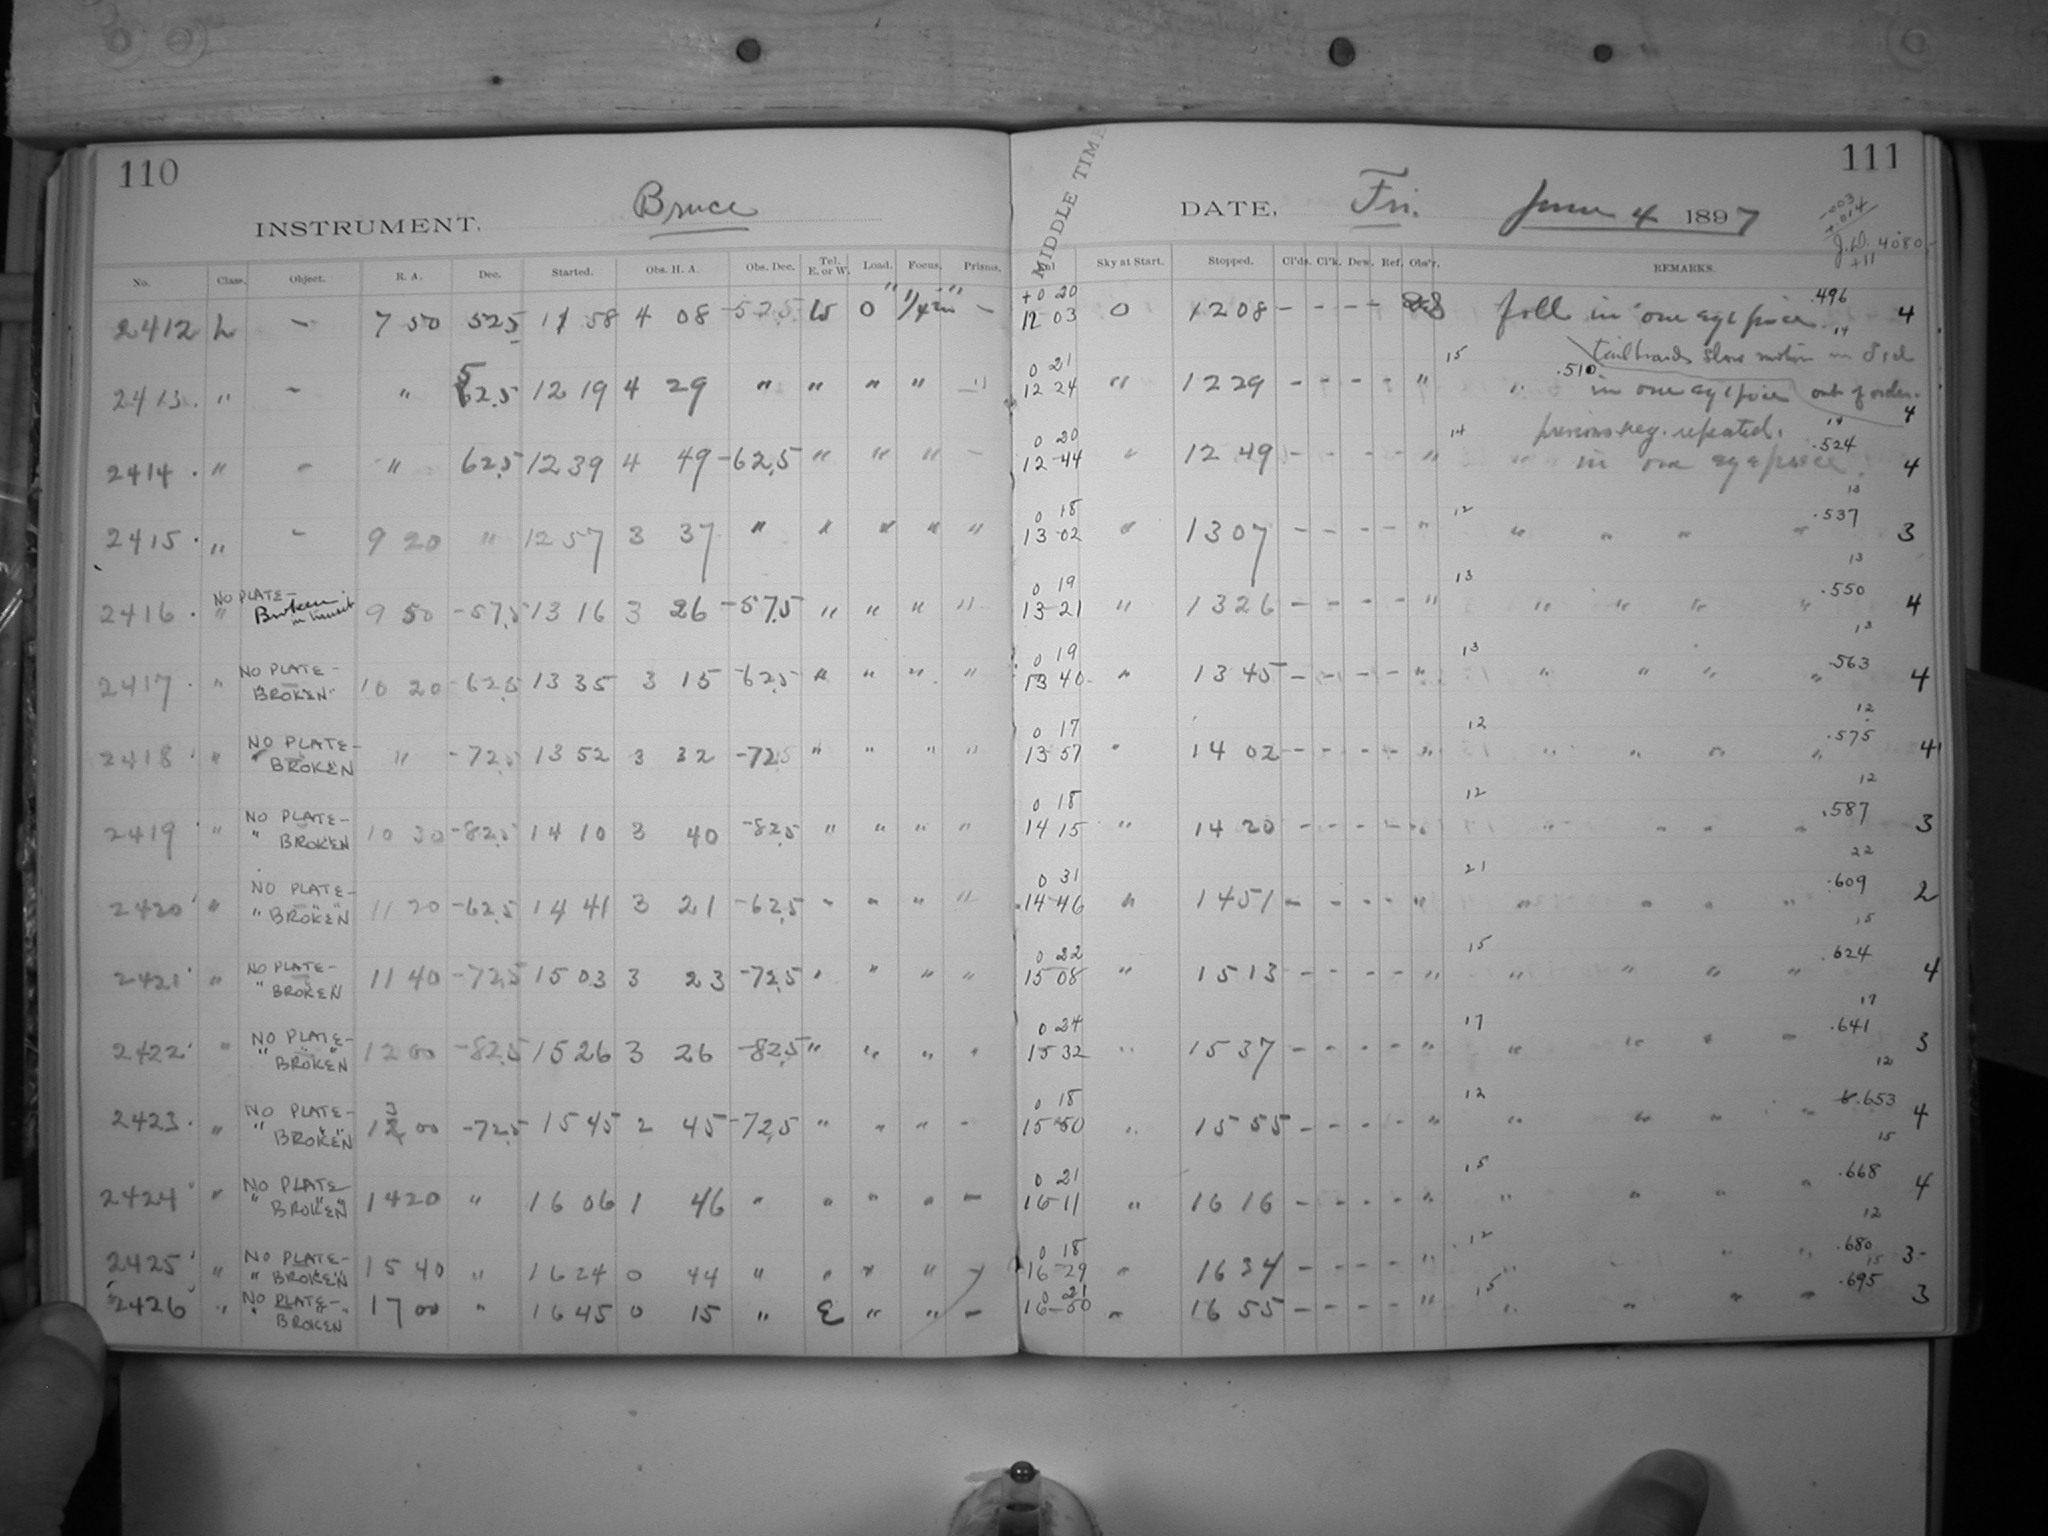 110
INSTRUMENT, Bruce
No. Class. Object. R. A. Dec. Started. Obs. H. A. Obs. Dec. Tel. E. or W. Load. Focus. Prisms.
2412 L - 7 50 525 11 58 4 08 -525 W 0 -
2413 " - " 525 12 19 4 29 " " " " "
2414 " - " 625 12 39 4 49 -625 " " " -
2415 " - 9 20 " 12 57 3 37 " " " " "
2416 " NO PLATE- Broken in transit 9 50 -575 13 16 3 26 -575 " " " "
2417 " NO PLATE- BROKEN 10 20 -625 13 35 3 15 -625 " " " "
2418 " NO PLATE- " BROKEN " -725 13 52 3 32 -725 " " " "
2419 " NO PLATE- " BROKEN 10 30 -825 14 10 3 40 -825 " " " "
2420 " NO PLATE- " BROKEN 11 20 -625 14 41 3 21 -625 " " " "
2421 " NO PLATE- " BROKEN 11 40 -725 15 03 3 23 -725 " " " "
2422 " NO PLATE- " BROKEN 12 00 -825 15 26 3 26 -825 " " " "
2423 " NO PLATE- " BROKEN 13 00 -725 15 45 2 45 -725 " " " -
2424 " NO PLATE- " BROKEN 14 20 " 16 06 1 46 " " " " -
2425 " NO PLATE- " BROKEN 15 40 " 16 24 0 44 " " " " -
2426 " NO PLATE- " BROKEN 17 00 " 16 45 0 15 " E " " -
111
MIDDLE TIME
DATE, Fri. June 4 1897
J.D. 4080
+11
Sky at Start. Stopped. Cl'ds. Cl'k. Dew. Ref. Obs'r. REMARKS.
+0 20
12 03 0 12 08 - - - - foll in one eyepiece .496 4
14
0 21 15
12 24 " 12 29 - - - - " " .510 in one eyepiece out of order. 4
previous neg. repeated. 14
0 20 14
12 44 " 12 49 - - - - " " in one eyepiece .524 4
13
0 18 12
13 02 " 13 07 - - - - " " " " " .537 3
13
0 19 13
13 21 " 13 26 - - - - " " " " " .550 4
13
0 19 13
13 40 " 13 45 - - - - " " " " " .563 4
12
0 17 12
13 57 " 14 02 - - - - " " " " " .575 4
12
0 18 12
14 15 " 14 20 - - - - " " " " " .587 3
22
0 31 21
14 46 " 14 51 - - - - " " " " " .609 2
15
0 22 15
15 08 " 15 13 - - - - " " " " " .624 4
17
0 24 17
15 32 " 15 37 - - - - " " " " " .641 3
12
0 18 12
15 50 " 15 55 - - - - " " " " " .653 4
15
0 21 15
16 11 " 16 16 - - - - " " " " " .668 4
12
0 18 12
16 29 " 16 34 - - - - " " " " .680 3-
15
0 21 15
16 50 " 16 55 - - - - " " " " " .695 3